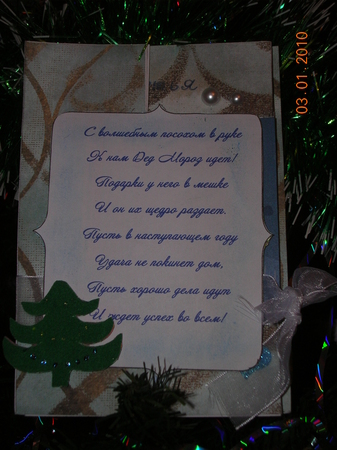 С волшебным посохом в руке
К нам Дед Мороз идет!
Подарки у него в мешке
И он их щедро раздает.
Пусть в наступающем году
Удача не покинет дом,
Пусть хорошо дела идут
И ждет успех во всем!
03 01 2010